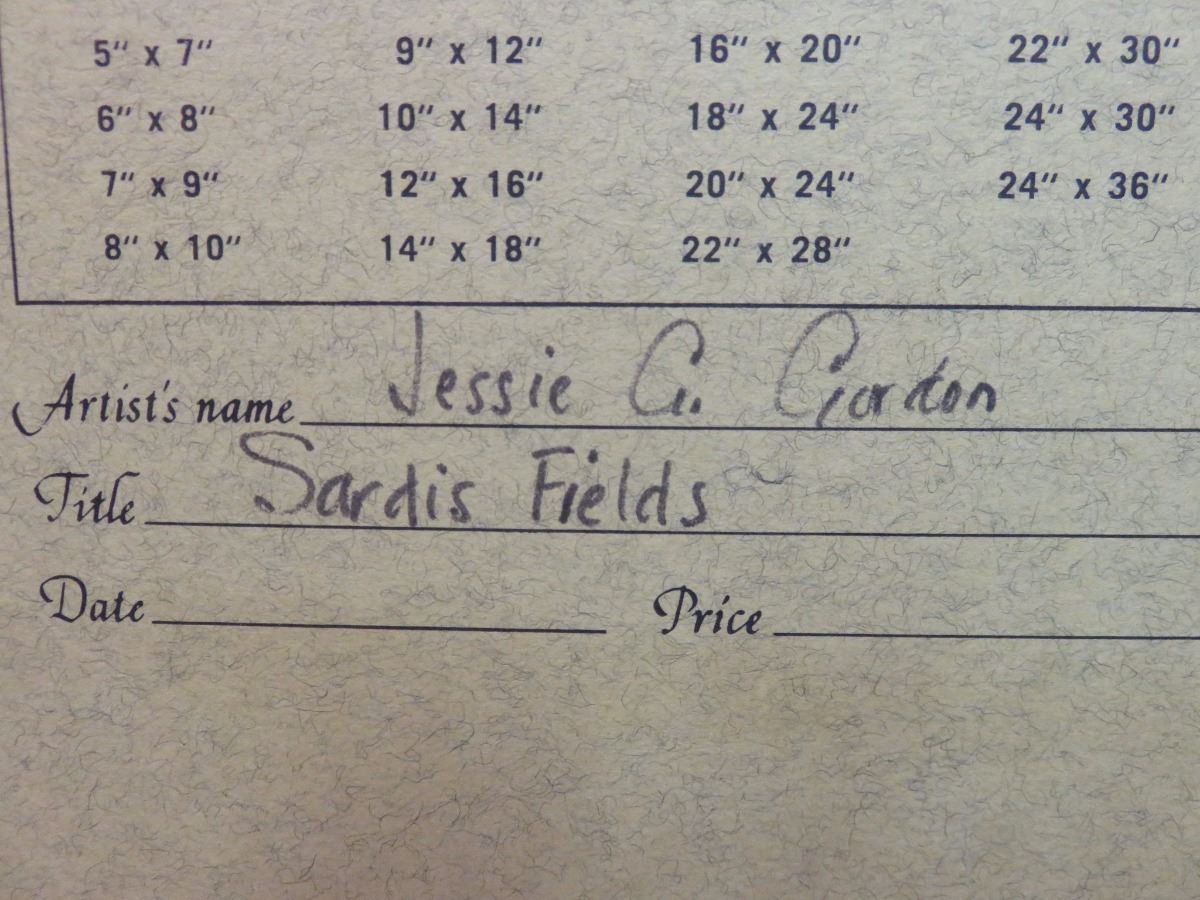 5" x 7" 9" x 12" 16" x 20" 22" x 30"
6" x 8" 10" x 14" 18" x 24" 24" x 30"
7" x 9" 12" x 16" 20" x 24" 24" x 36"
8" x 10" 14" x 18" 22" x 28"
Artist's name Jessie G. Gordon
Title Sardis Fields
Date Price